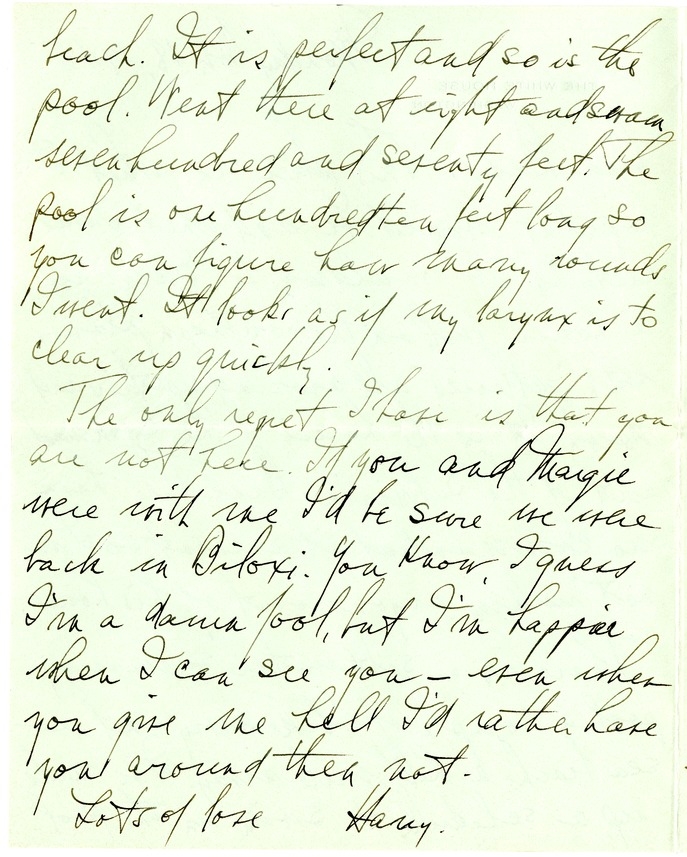 beach. It is perfect and so is the
pool. Went there at eight and swam
seven hundred and seventy feet. The
pool is one hundred ten feet long so
you can figure how many rounds
I went. It looks as if my larynx is to
clear up quickly.
The only regret I have is that you
are not here. If you and Margie
were with me I'd be sure we were
back in Biloxi. You know, I guess
I'm a damn fool, but I'm happier
when I can see you – even when
you give me hell I'd rather have
you around then not.
Lots of love Harry.